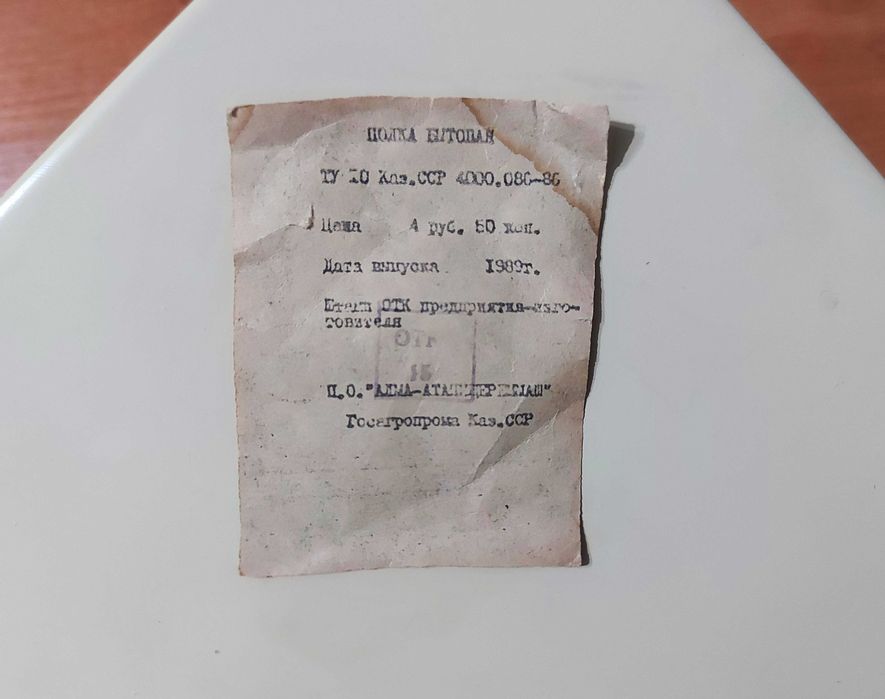 ПОЛКА БЫТОВАЯ
ТУ 10 Каз.ССР 4000.086-86
Цена 4 руб. 50 коп.
Дата выпуска 1989г.
Штамп ОТК предприятия-изго-
товителя
ОТК
П.О."
Госагропрома Каз.ССР